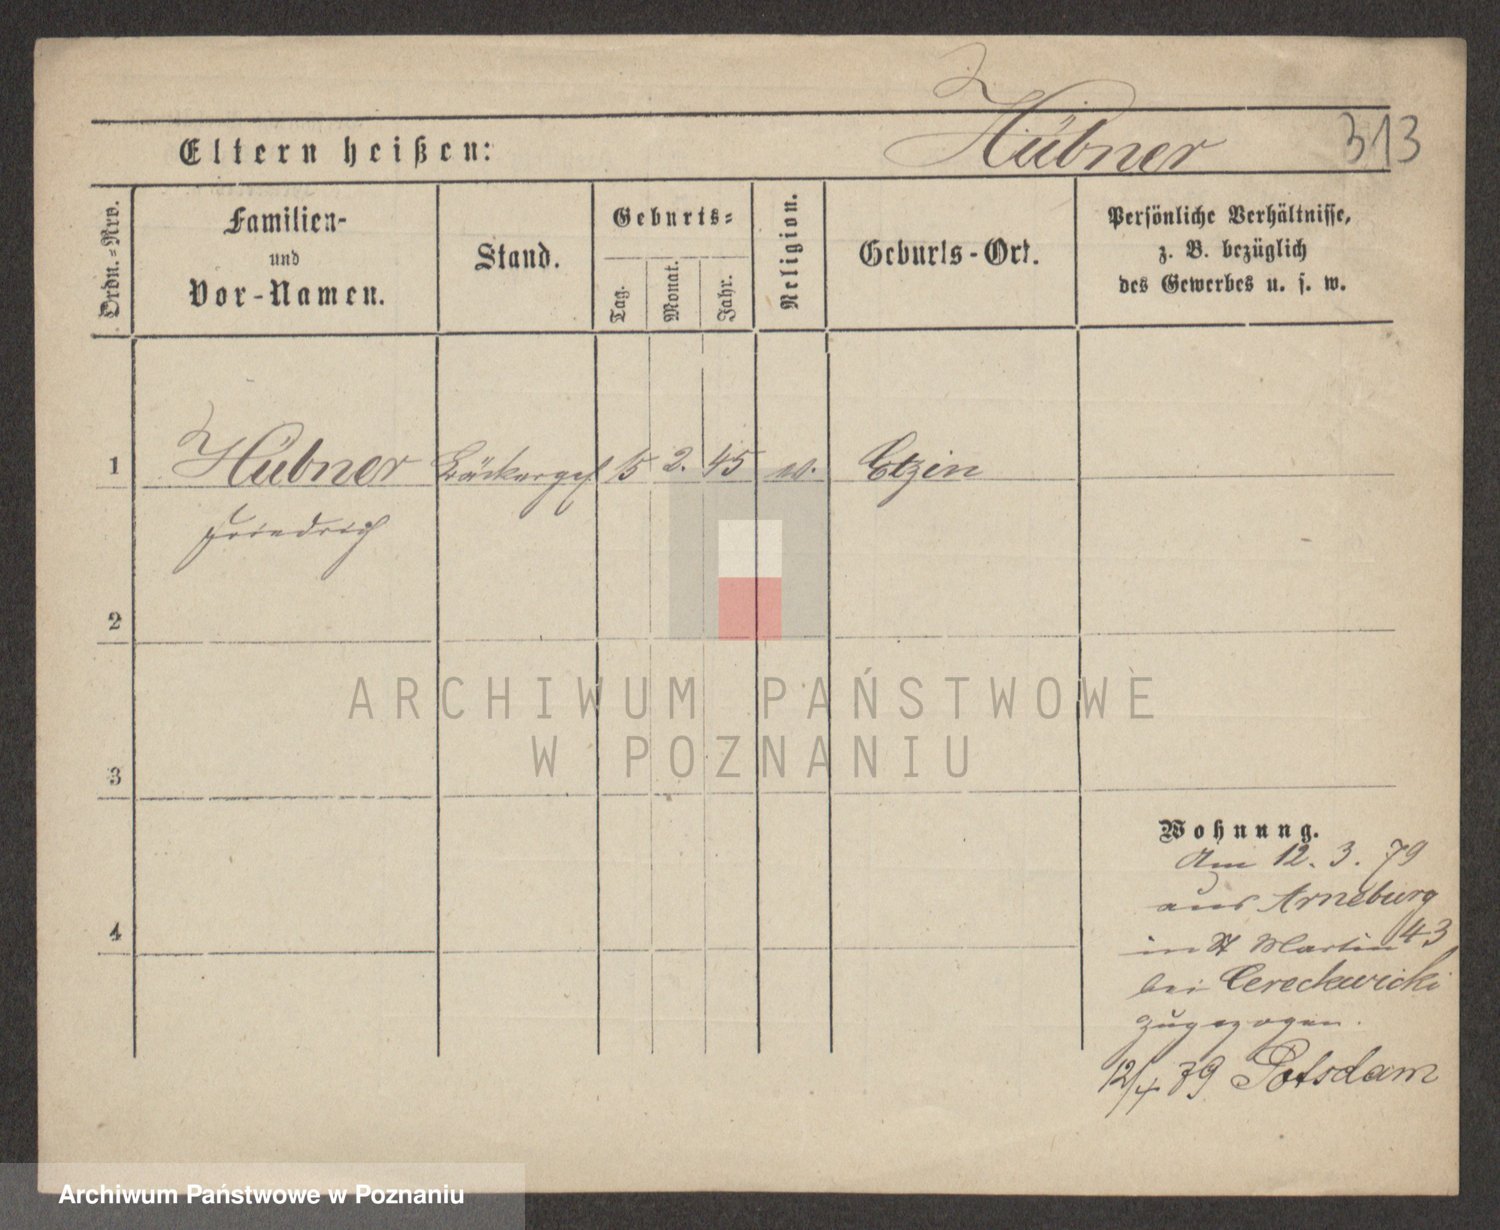 Hübner 313
Eltern heißen:
Ordn.=Nro.
Familien-
und
Vor-Namen.
Stand.
Geburts=
Tag.
Monat.
Jahr.
Religion.
Geburts-Ort.
Persönliche Verhältnisse,
z. B. bezüglich
des Gewerbes u. s. w.
1 Hübner Bäckerges. 15 2. 45 ev. Etzin
Friedrich
2
3
4
Wohnung.
Am 12. 3. 79
aus Arneburg
in St Martin 43
bei Cereckwicki
zugezogen.
12/4 79 Potsdam
ARCHIWUM PAŃSTWOWE
W POZNANIU
Archiwum Państwowe w Poznaniu